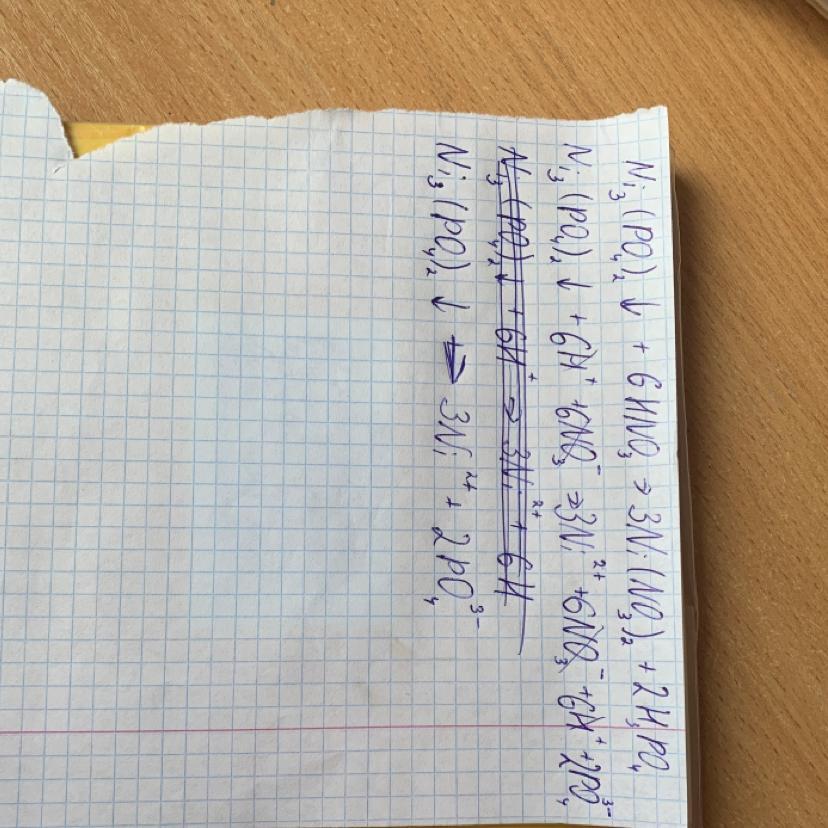 Ni₃(PO₄)₂↓ + 6HNO₃ → 3Ni(NO₃)₂ + 2H₃PO₄
Ni₃(PO₄)₂↓ + 6H⁺ + 6NO₃⁻ → 3Ni²⁺ + 6NO₃⁻ + 6H⁺ + 2PO₄³⁻
Ni₃(PO₄)₂↓ + 6H⁺ → 3Ni²⁺ + 6H
Ni₃(PO₄)₂↓ → 3Ni²⁺ + 2PO₄³⁻